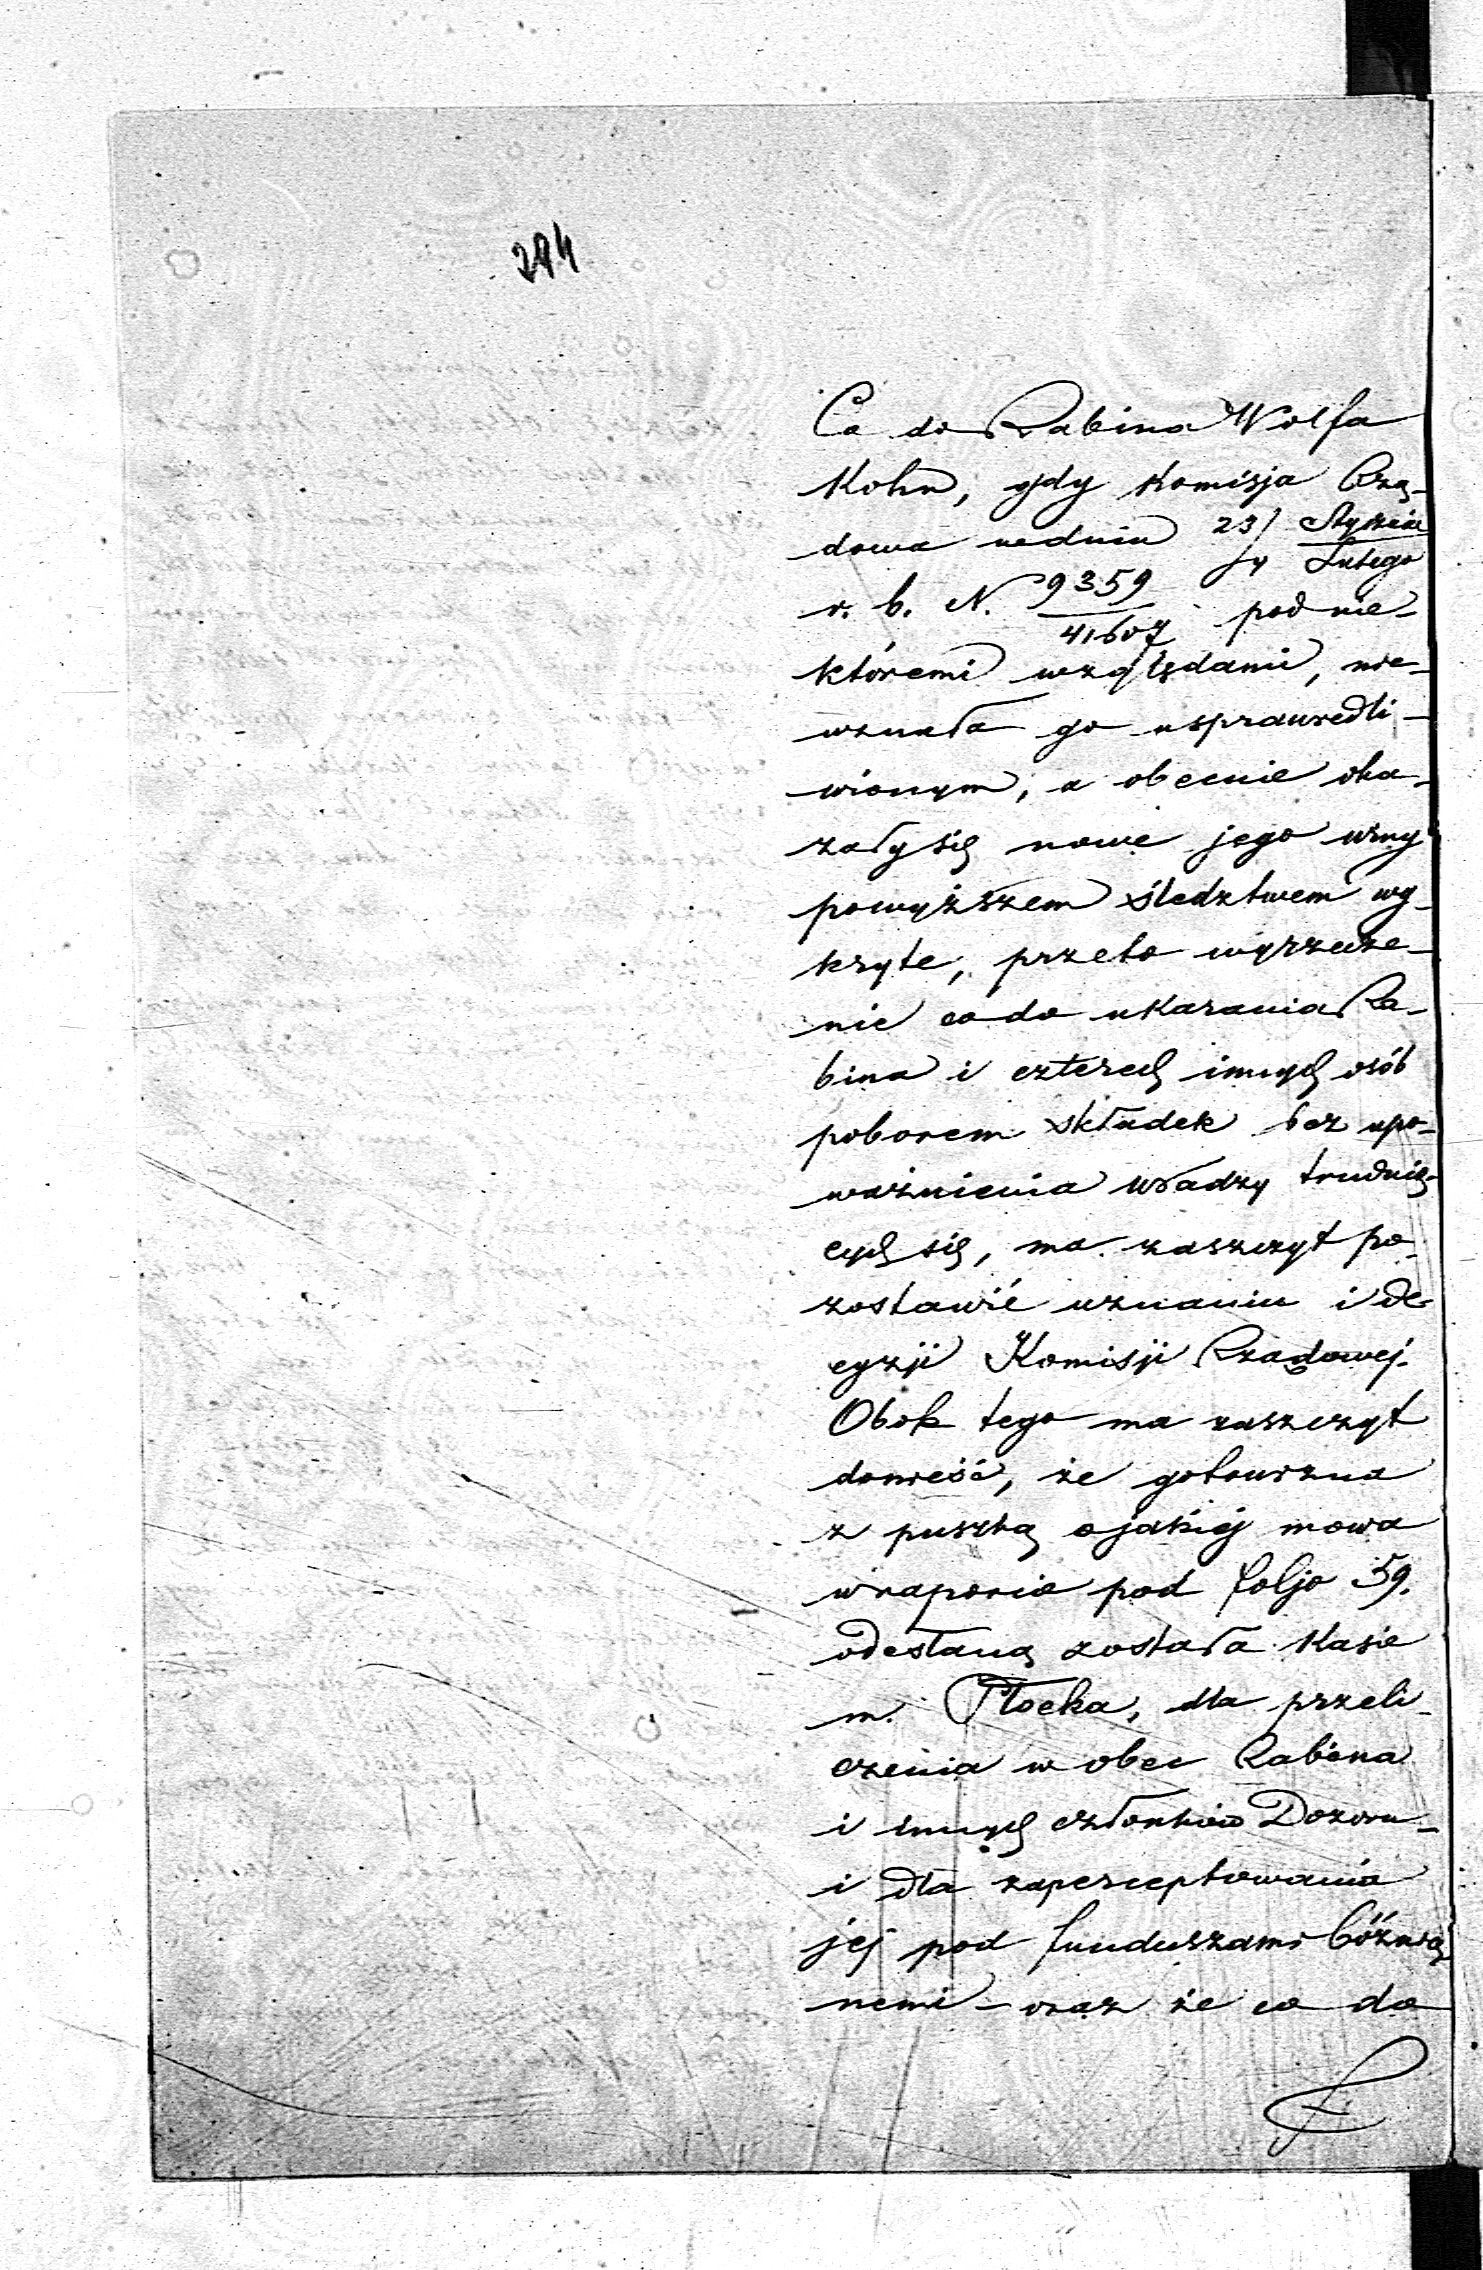 294
Co do Rabina Wolfa
Kohn, gdy Komisja Rzą-
dowa w dniu 23/ Stycznia
/4 Lutego
r. b. N. 9359/41607 pod nie-
któremi względami, nie-
uznała go usprawiedli-
wionym, a obecnie oka-
zały się nowe jego winy
powyższem śledztwem wy-
kryte, przeto wyrzecze-
nie co do ukarania Ra-
bina i czterech innych osób
poborem składek bez upo-
ważnienia władzy trudnią-
cych się, ma zaszczyt po-
zostawić uznaniu i de-
cyzji Komisji Rządowej.
Obok tego ma zaszczyt
donieść, że gotowizna
z puszką o jakiej mowa
w raporcie pod foljo 59.
odesłaną została Kasie
m. Płocka, dla przeli-
czenia w obec Rabina
i innych członków Dozoru-
i dla zaperceptowania
jej pod funduszami bóżni-
nemi - oraz że co do